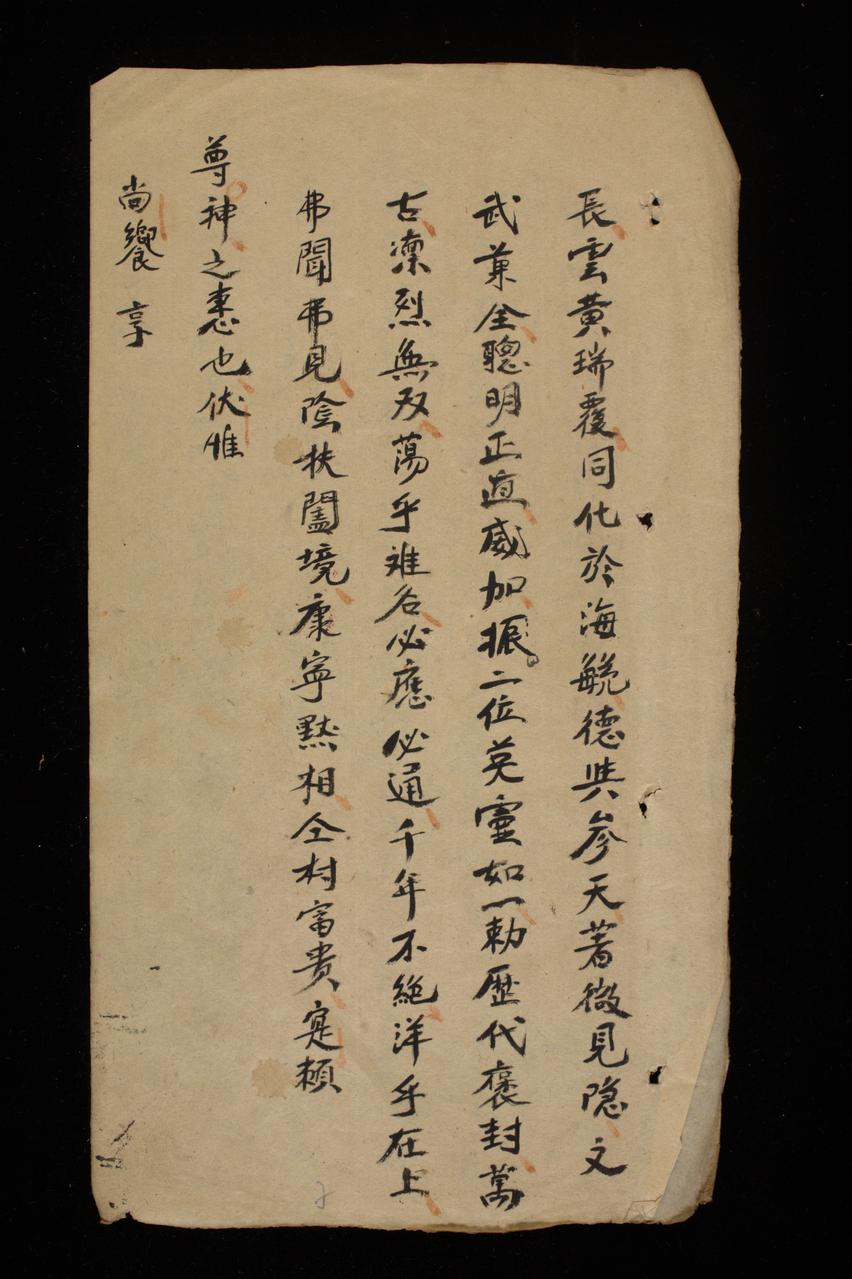 長雲黄瑞覆同化於海毓德共參天著微見隐文
武兼全聰明正直威加振二位英靈如一勅歷代褒封萬
古凛烈無双蕩乎难名必應必通千年不絕洋乎在上
弗聞弗見陰扶闔境康寧黙相仝村富貴寔頼
尊神之惠也伏惟
尚饗 享